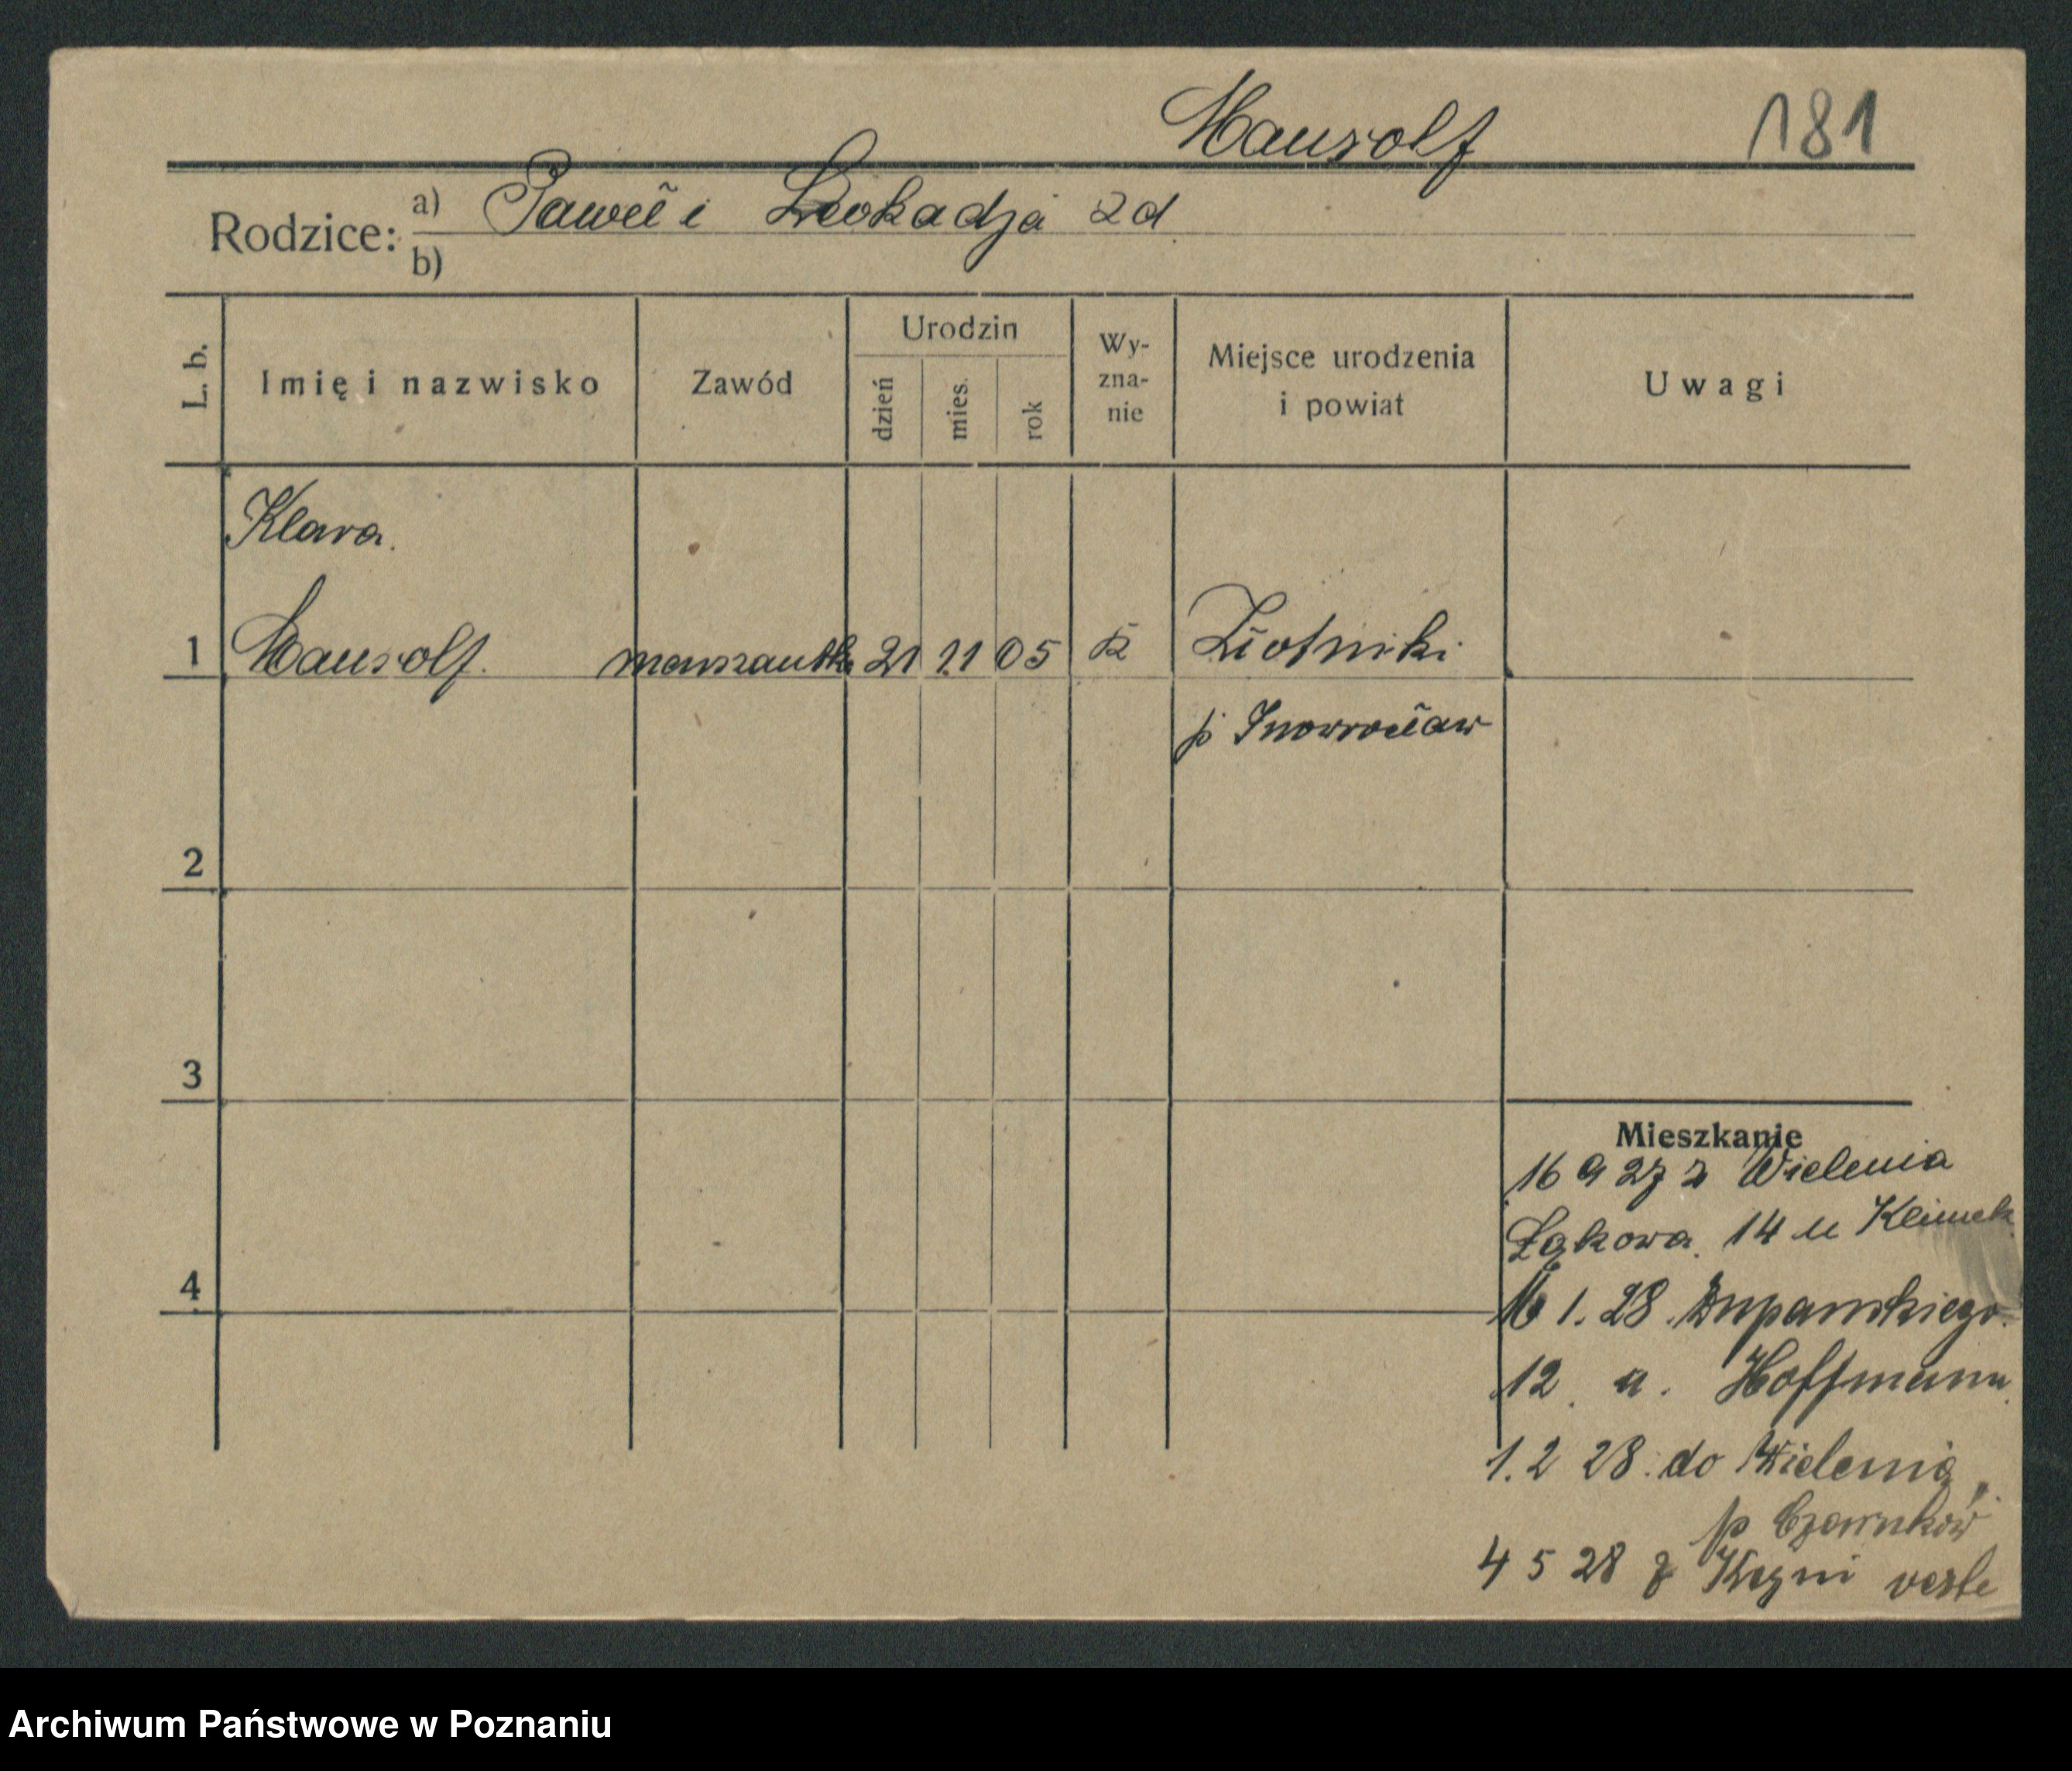 Mausolf 181
Rodzice: a) Paweł i Leokadja zd
b)
L. b. Imię i nazwisko Zawód Urodzin dzień mies. rok Wy-zna-nie Miejsce urodzenia i powiat Uwagi
Klara.
1 Mausolf. 21 11 05 k Złotniki
p Inowrocław
2
3
Mieszkanie
16 9 27 z Wielenia
Łąkowa. 14 u Klimek
4
16 1. 28. Żupańskiego.
12. u. Hoffmann
1. 2 28. do Wielenia,
p Czarnków
4 5 28 z Kcyni
Archiwum Państwowe w Poznaniu